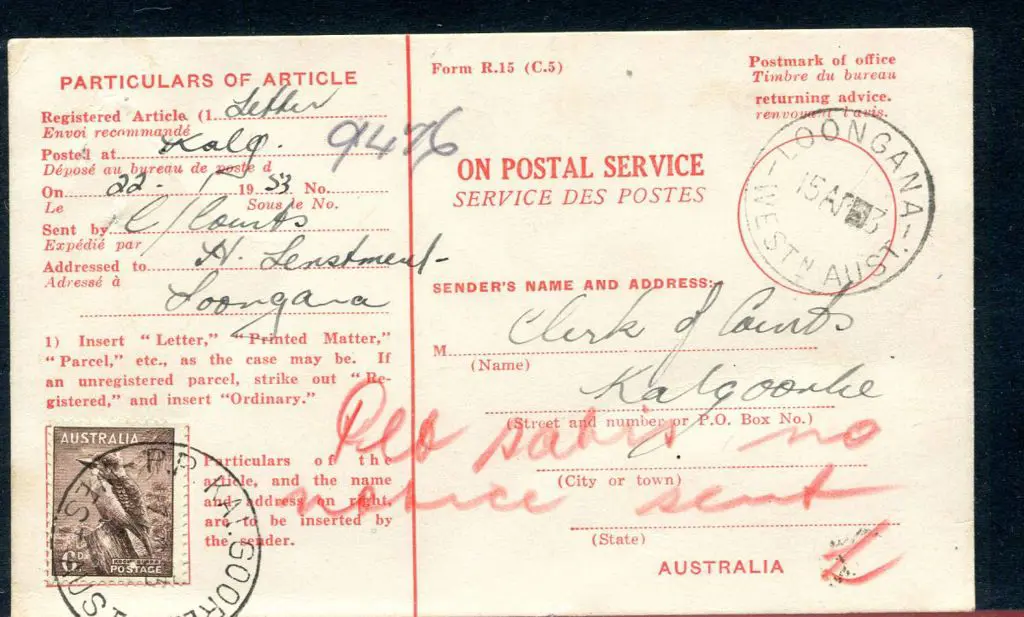 PARTICULARS OF ARTICLE
Registered Article (1 Letter
Envoi recommandé
Posted at Kalg.
Déposé au bureau de poste d
On 22- 1953 No. 9476
Le Sous le No.
Sent by C/Courts
Expédié par
Addressed to H.
Adressé à
Loongana
1) Insert "Letter," "Printed Matter,"
"Parcel," etc., as the case may be. If
an unregistered parcel, strike out "Re-
gistered," and insert "Ordinary."
AUSTRALIA
6D
KOOKABURRA
POSTAGE
R.P. KALGOORL
Particulars of the
article, and the name
and address on right,
are to be inserted by
the sender.
Form R.15 (C.5)
ON POSTAL SERVICE
SERVICE DES POSTES
Postmark of office
Timbre du bureau
returning advice.
renvoyant l'avis.
LOONGANA
15 AP 53
WESTN AUST
SENDER'S NAME AND ADDRESS:
M Clerk of Courts
(Name)
Kalgoorlie
(Street and number or P.O. Box No.)
no
(City or town)
notice sent
(State)
AUSTRALIA